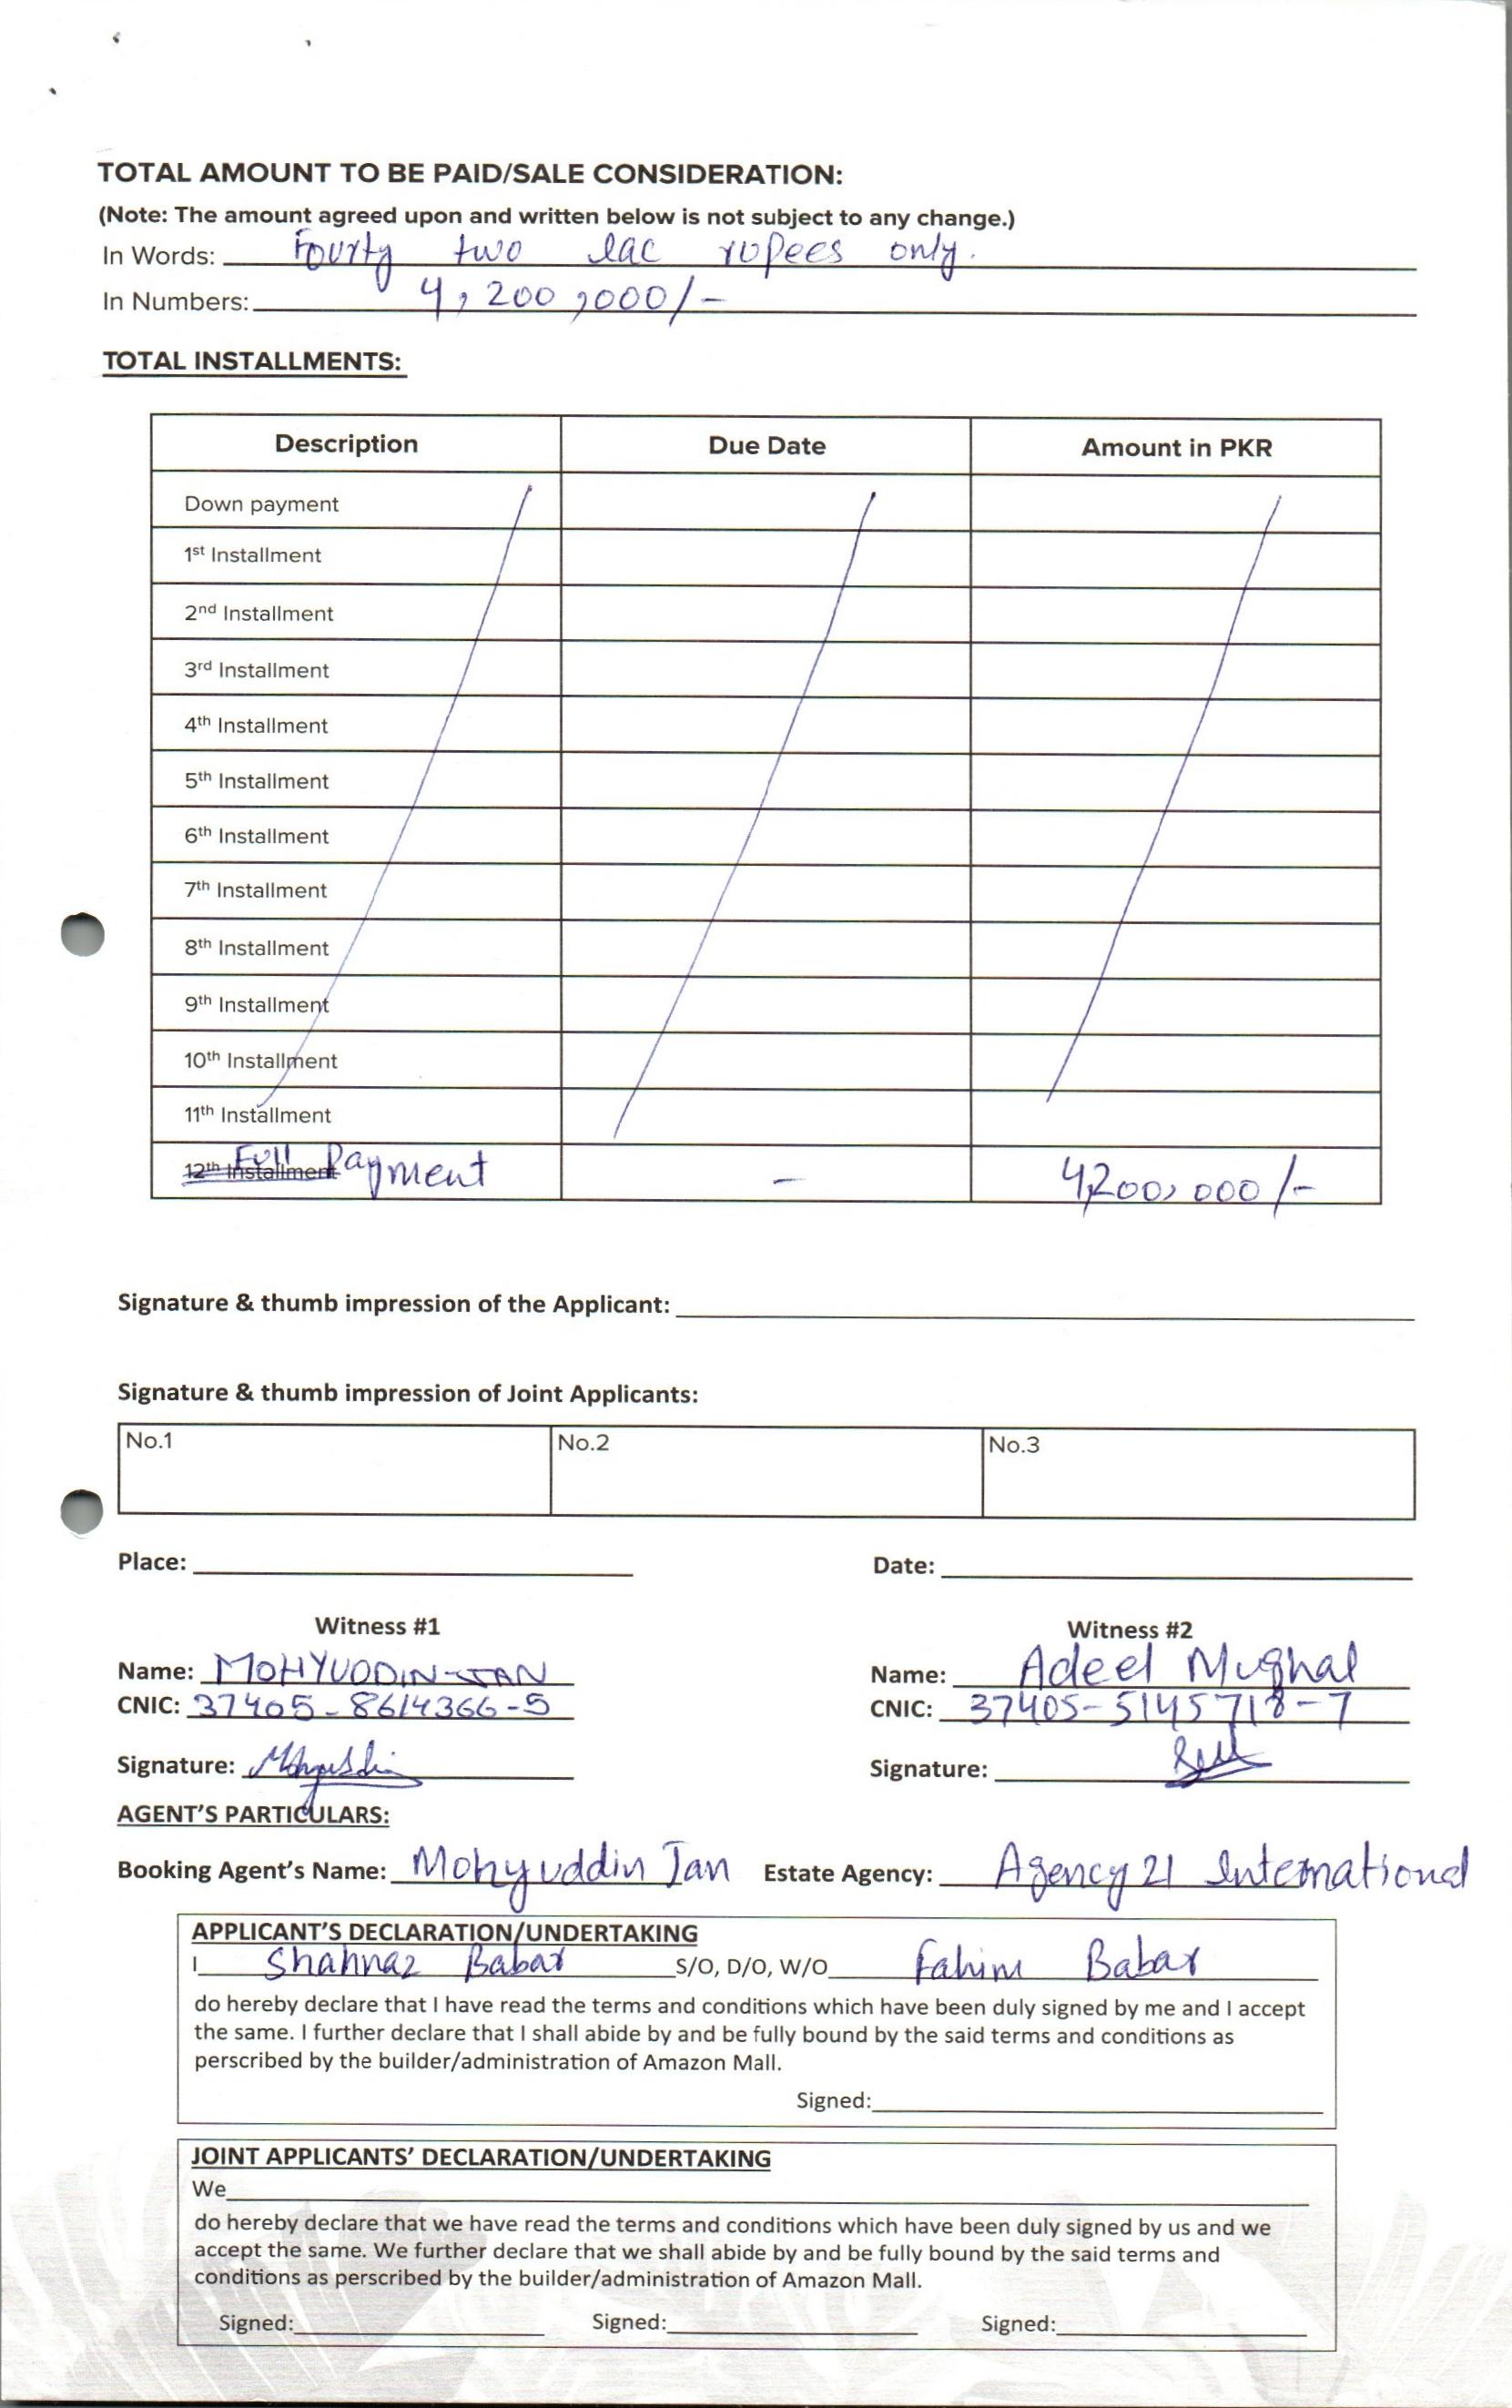 TOTAL AMOUNT TO BE PAID/SALE CONSIDERATION:
(Note: The amount agreed upon and written below is not subject to any change.)
In Words: Fourty two lac rupees only.
In Numbers: 4,200,000/-
TOTAL INSTALLMENTS:
Description Due Date Amount in PKR
Down payment
1st Installment
2nd Installment
3rd Installment
4th Installment
5th Installment
6th Installment
7th Installment
8th Installment
9th Installment
10th Installment
11th Installment
12th Installment Full Payment - 4,200,000/-
Signature & thumb impression of the Applicant:
Signature & thumb impression of Joint Applicants:
No.1 No.2 No.3
Place: Date:
Witness #1 Witness #2
Name: MOHYUDDIN JAN Name: Adeel Mughal
CNIC: 37405-8614366-5 CNIC: 37405-5145718-7
Signature: Signature:
AGENT'S PARTICULARS:
Booking Agent's Name: Mohyuddin Jan Estate Agency: Agency 21 International
APPLICANT'S DECLARATION/UNDERTAKING
I Shahnaz Babar S/O, D/O, W/O Fahim Babar
do hereby declare that I have read the terms and conditions which have been duly signed by me and I accept
the same. I further declare that I shall abide by and be fully bound by the said terms and conditions as
perscribed by the builder/administration of Amazon Mall.
Signed:
JOINT APPLICANTS' DECLARATION/UNDERTAKING
We
do hereby declare that we have read the terms and conditions which have been duly signed by us and we
accept the same. We further declare that we shall abide by and be fully bound by the said terms and
conditions as perscribed by the builder/administration of Amazon Mall.
Signed: Signed: Signed: